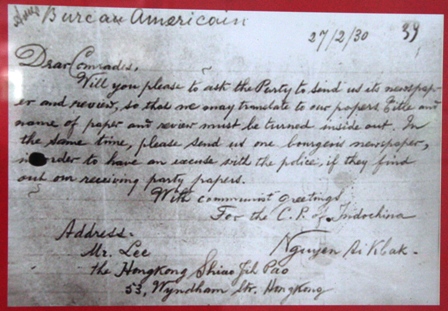 Bureau Americain
27/2/30 39
Dear Comrades,
Will you please to ask the Party to send us its newspap-
er and review, so that we may translate to our papers. Title and
name of paper and review must be turned inside out. In
the same time, please send us one bourgeois newspaper,
in order to have an excuse with the police, if they find
out our receiving party papers.
With communist greetings
For the C.P. of Indochina
Nguyen Ai Kbak.
Address.
Mr. Lee
the Hongkong Shiao Jih Pao
53, Wyndham Str. Hongkong